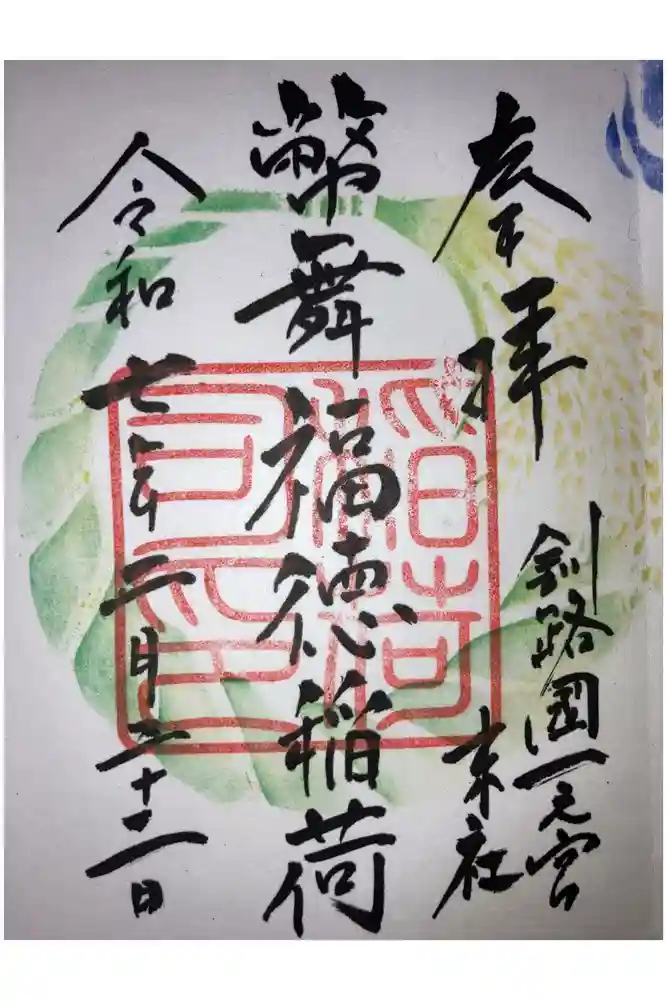 奉拝
釧路國一之宮
末社
幣舞福徳稲荷
令和七年二月二十二日
稲荷